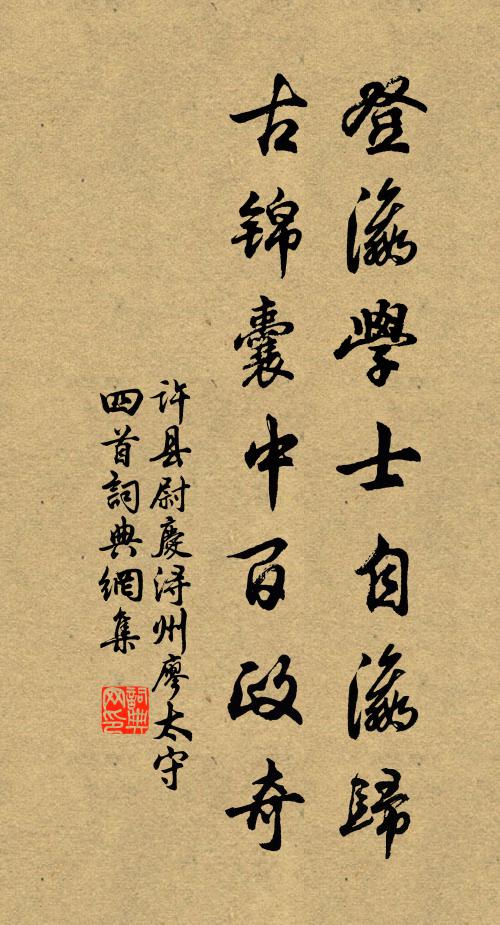 登瀛學士自瀛歸
古錦囊中百政奇
许县尉慶浔州廖太守
四首詞典網集
詞典网印